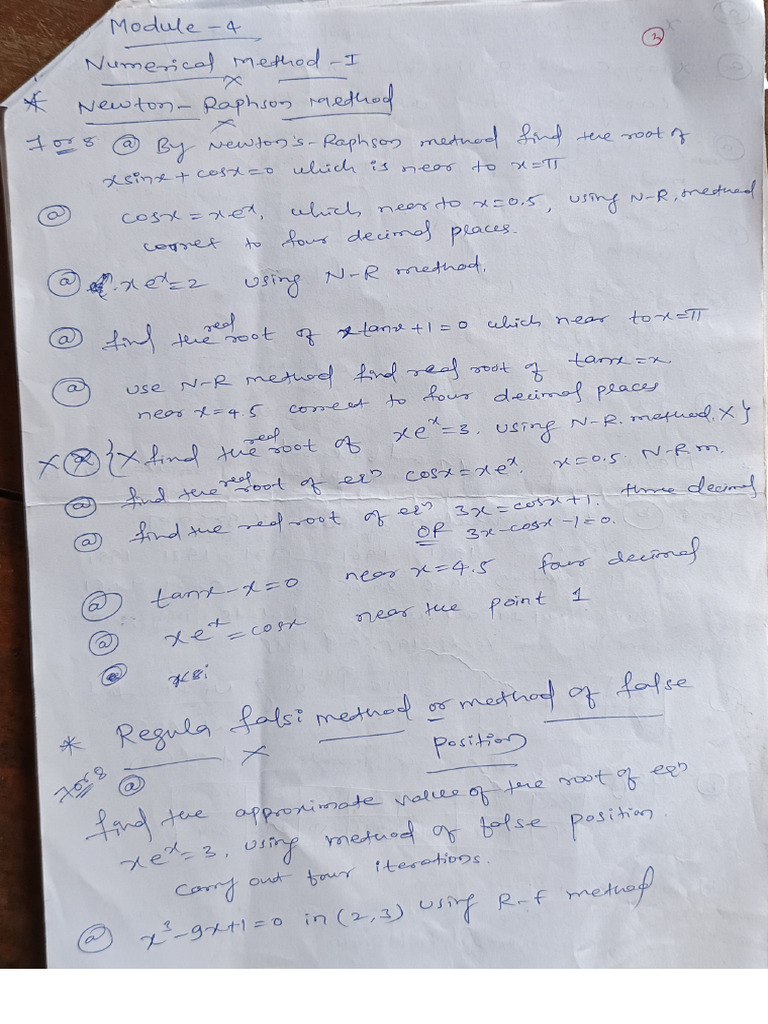 Module-4
3
Numerical Method-I
x
* Newton-Raphson Method
x
7 or 8 (a) By Newton's-Raphson method find the root of
xsinx+cosx=0 which is near to x=π
(a) cosx=xeˣ, which near to x=0.5, using N-R, method
correct to four decimal places.
(a) xeˣ=2 using N-R method.
(a) find the real root of xtanx+1=0 which near to x=π
(a) use N-R method find real root of tanx=x.
near x=4.5 correct to four decimal places
X (x) {X find the real root of xeˣ=3. using N-R. method. X}
(a) find the real root of eqn cosx=xeˣ. x=0.5. N-R m.
(a) find the real root of eqn 3x=cosx+1. three decimal
OR 3x-cosx-1=0.
(a) tanx-x=0 near x=4.5 four decimal
(a) xeˣ=cosx near the point 1
xsi
* Regula falsi method or method of false
x position
7 or 8 (a)
find the approximate value of the root of eqn
xeˣ=3, using method of false position.
carry out four iterations.
(a) x³-9x+1=0 in (2,3) using R-f method